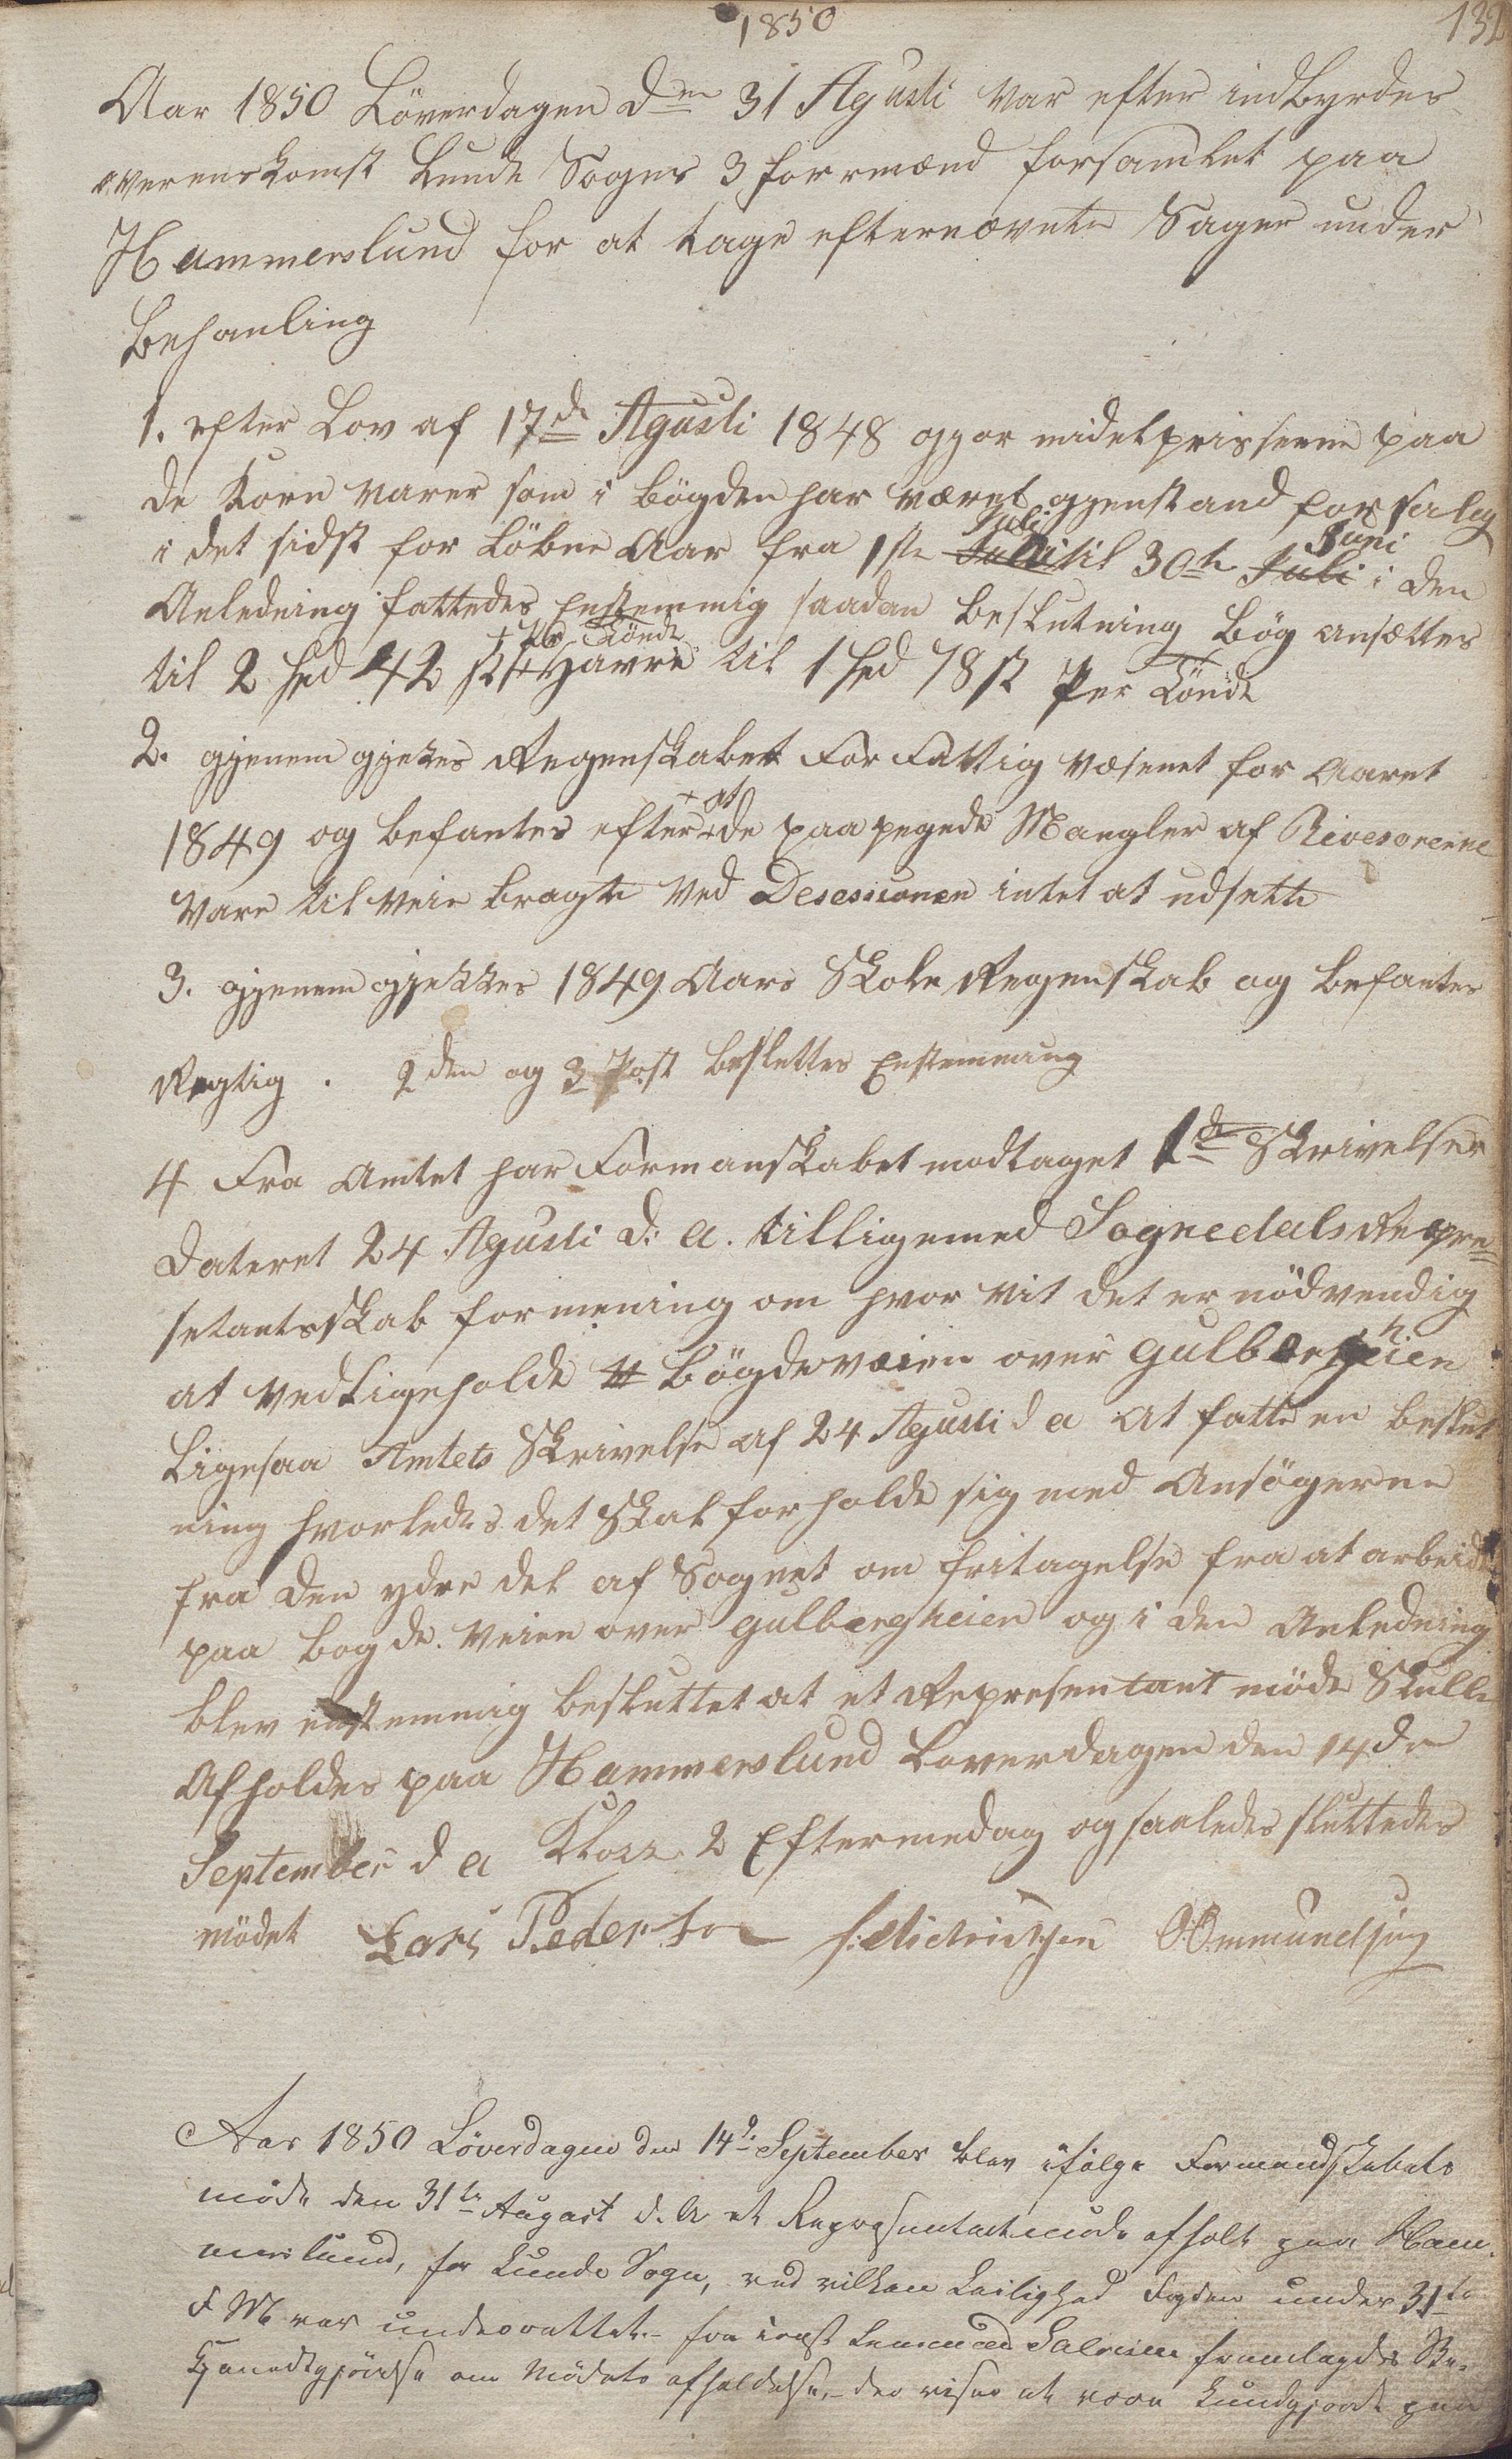 1850
132
Aar 1850 Löverdagen den 31 Agusti var efter indbyrdes
overenskomst Lunde Sogns 3 formænd forsamlet paa
Hammerslund for at tage efternævnte Sager under
Behanling
1. efter Lov af 17de Agusti 1848 ogsor midelprisserne paa
de Korn varer som i bögden har været gjenstand for salg
i det sidst for Löbne Aar fra 1ste Juli til 30te Juni i den
Anledning fattedes Enstemmig saadan beslutning Bög ansættes
til 2 spd 42 sk pr Tönde Havre til 1 spd 78 sk Per Tönde
2. gjenem gjekes Regenskabet For Fattig væsenet for Aaret
1849 og befantes efter at de paapegede Mangler af Rivesorerne
vare til veie bragte ved Desesionen intet at udsette
3. gjenem gjekkes 1849 Aars Skole Regenskab og befantes
Regtig. 2den og 3 Post besluttes Enstemmig
4 Fra Amtet har Formanskabet modtaget 1de Skrivelser
Dateret 24 Agusti d: a. tilligemed Sognedals Repre=
setantsskab formening om hvor vit det er nödvendig
at vedligeholde Bögdeveien over Gulbergheien
Ligesaa Amtets Skrivelse af 24 Agusti d a at fatte en beslut
ning hvorledes det Skal forholde sig med Ansögerne
fra den ydre del af Sognet om fritagelse fra at arbeide
paa bogde. Veien over gulbergheien og i den Anledning
blev enstemmig besluttet at et Representant möde Skulle
Afholdes paa Hammerslund Loverdagen den 14de
September d a Klokk 2 Eftermedag og saaledes sluttedes
mödet Lars Pederson Ommundsen
Aar 1850 Löverdagen den 14de September blev ifölge Formandskabets
möde den 31te August d. A et Repræsentantmöde afholt paa Ham.
merslund, for Lunde Sogn, ved vilken Leilighed Fogden under 31te
f M var underrettet. fra Lensmand Salvesen fremlagdes Be-
kjendtgjörelse om Mödets afholdelse, der viser at være kundgjort paa